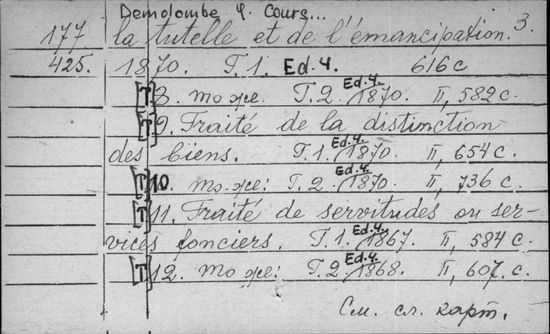 Demolombe Y. Cours... 3.
177 la tutelle et de l'émancipation.
425. 1870. T. 1. Ed. 4. 616 c
[T] 8. то же. T. 2. Ed. 4. 1870. II, 582 c.
[T] 9. Traité de la distinction
des biens. T. 1. Ed. 4. 1870. II, 654 c.
[T] 10. то же: T. 2. Ed. 4. 1870. II, 736 c.
[T] 11. Traité de servitudes ou ser-
vices fonciers. T. 1. Ed. 4. 1867. II, 584 c.
[T] 12. то же: T. 2. Ed. 4. 1868. II, 607. c.
См. сл. карт.